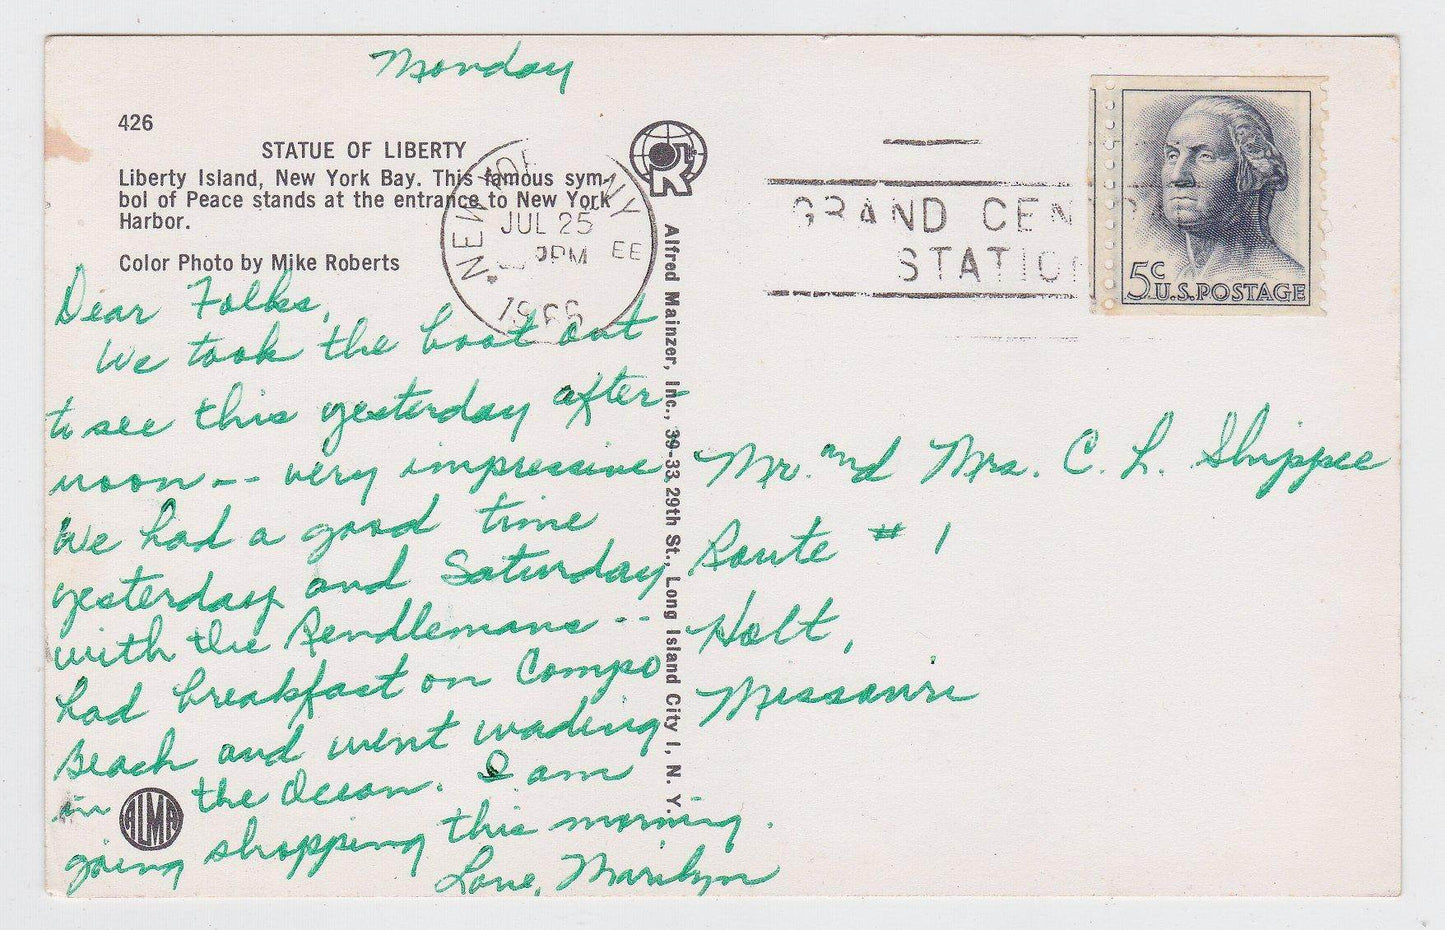 Monday
426
STATUE OF LIBERTY
Liberty Island, New York Bay. This famous sym-
bol of Peace stands at the entrance to New York
Harbor.
Color Photo by Mike Roberts
Dear Folks,
We took the boat out
to see this yesterday after-
noon -- very impressive
We had a good time
yesterday and Saturday
with the Rendlemans --
had breakfast on Compo
Beach and went wading
in the Ocean. I am
going shopping this morning.
Love, Marilyn
ALMA
NEW YORK NY
JUL 25
PM EE
1966
Alfred Mainzer, Inc., 39-33 29th St., Long Island City 1, N. Y.
GRAND CENTRAL
STATION
5c
U.S. POSTAGE
Mr. and Mrs. C. L. Shippee
Route # 1
Holt,
Missouri